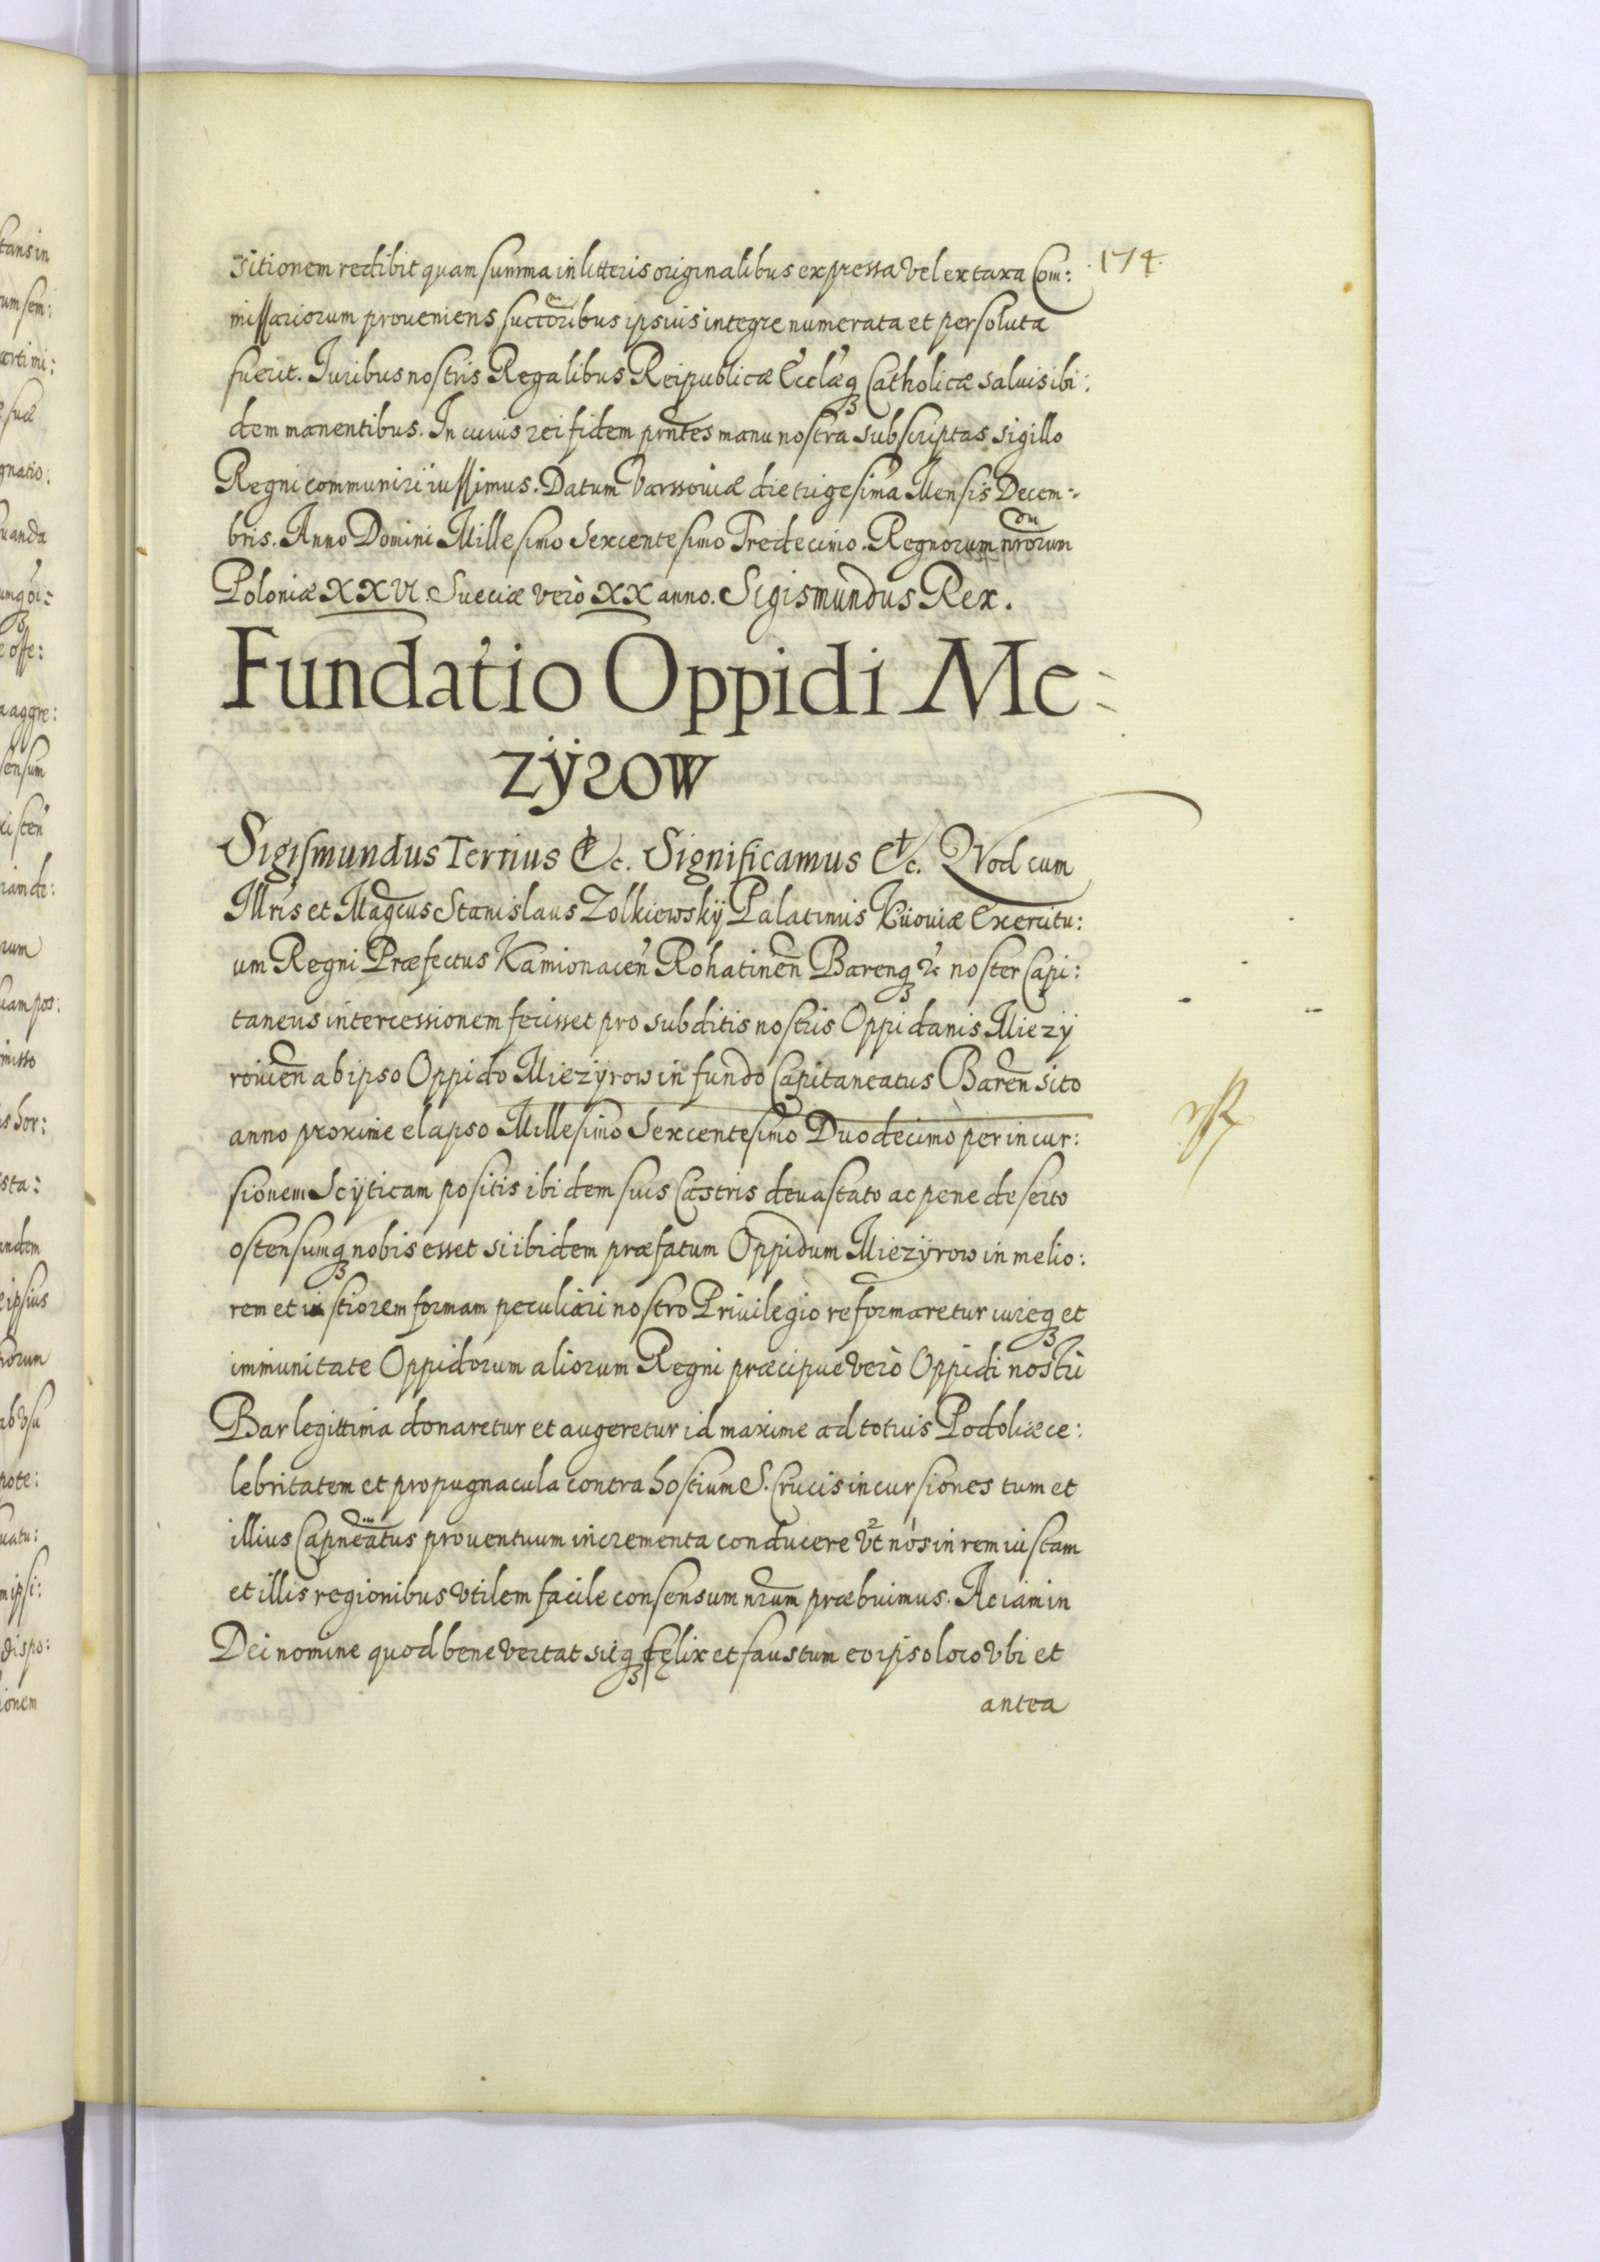 174.
sitionem redibit quam summa in litteris originalibus expressa vel ex taxa Com:
missariorum proueniens succoribus ipsius integre numerata et persoluta
fuerit. Iuribus nostris Regalibus Reipublicæ Ecclæq3 Catholicæ saluis ibi:
dem manentibus. In cuius rei fidem pñtes manu nostra subscriptas sigillo
Regni communiri iussimus. Datum Varssouiæ die trigesima Mensis Decem-
bris. Anno Domini Millesimo Sexcentesimo Tredecimo. Regnorum nrorum
Poloniæ XXVI. Sueciæ verò XX anno. Sigismundus Rex.
Fundatio Oppidi Me-
zÿrow
Sigismundus Tertius Etc. Significamus Etc. Quod cum
Illris et Magcus Stanislaus Zolkiewskÿ Palatinus Kiiouiæ Exercitu:
um Regni Præfectus Kamionacen Rohatinen Barenq3 &c noster Capi:
taneus intercessionem fecisset pro subditis nostris Oppidanis Miezÿ
rouien ab ipso Oppido Miezÿrow in fundo Capitaneatus Baren sito
anno proxime elapso Millesimo Sexcentesimo Duodecimo per incur:
sionem Scÿticam positis ibidem suis Castris deuastato ac pene deserto
ostensumq3 nobis esset si ibidem præfatum Oppidum Miezÿrow in melio:
rem et iustiorem formam peculiari nostro Priuilegio reformaretur iureq3 et
immunitate Oppidorum aliorum Regni præcipue verò Oppidi nostri
Bar legittima donaretur et augeretur id maxime ad totius Podoliæ ce:
lebritatem et propugnacula contra hostium S. Crucis incursiones tum et
illius Capneatus prouentuum incrementa conducere vt nos in rem iustam
et illis regionibus vtilem facile consensum nrum præbuimus. Ac iam in
Dei nomine quod bene vertat sitq3 fęlix et faustum eo ipso loco vbi et
antea